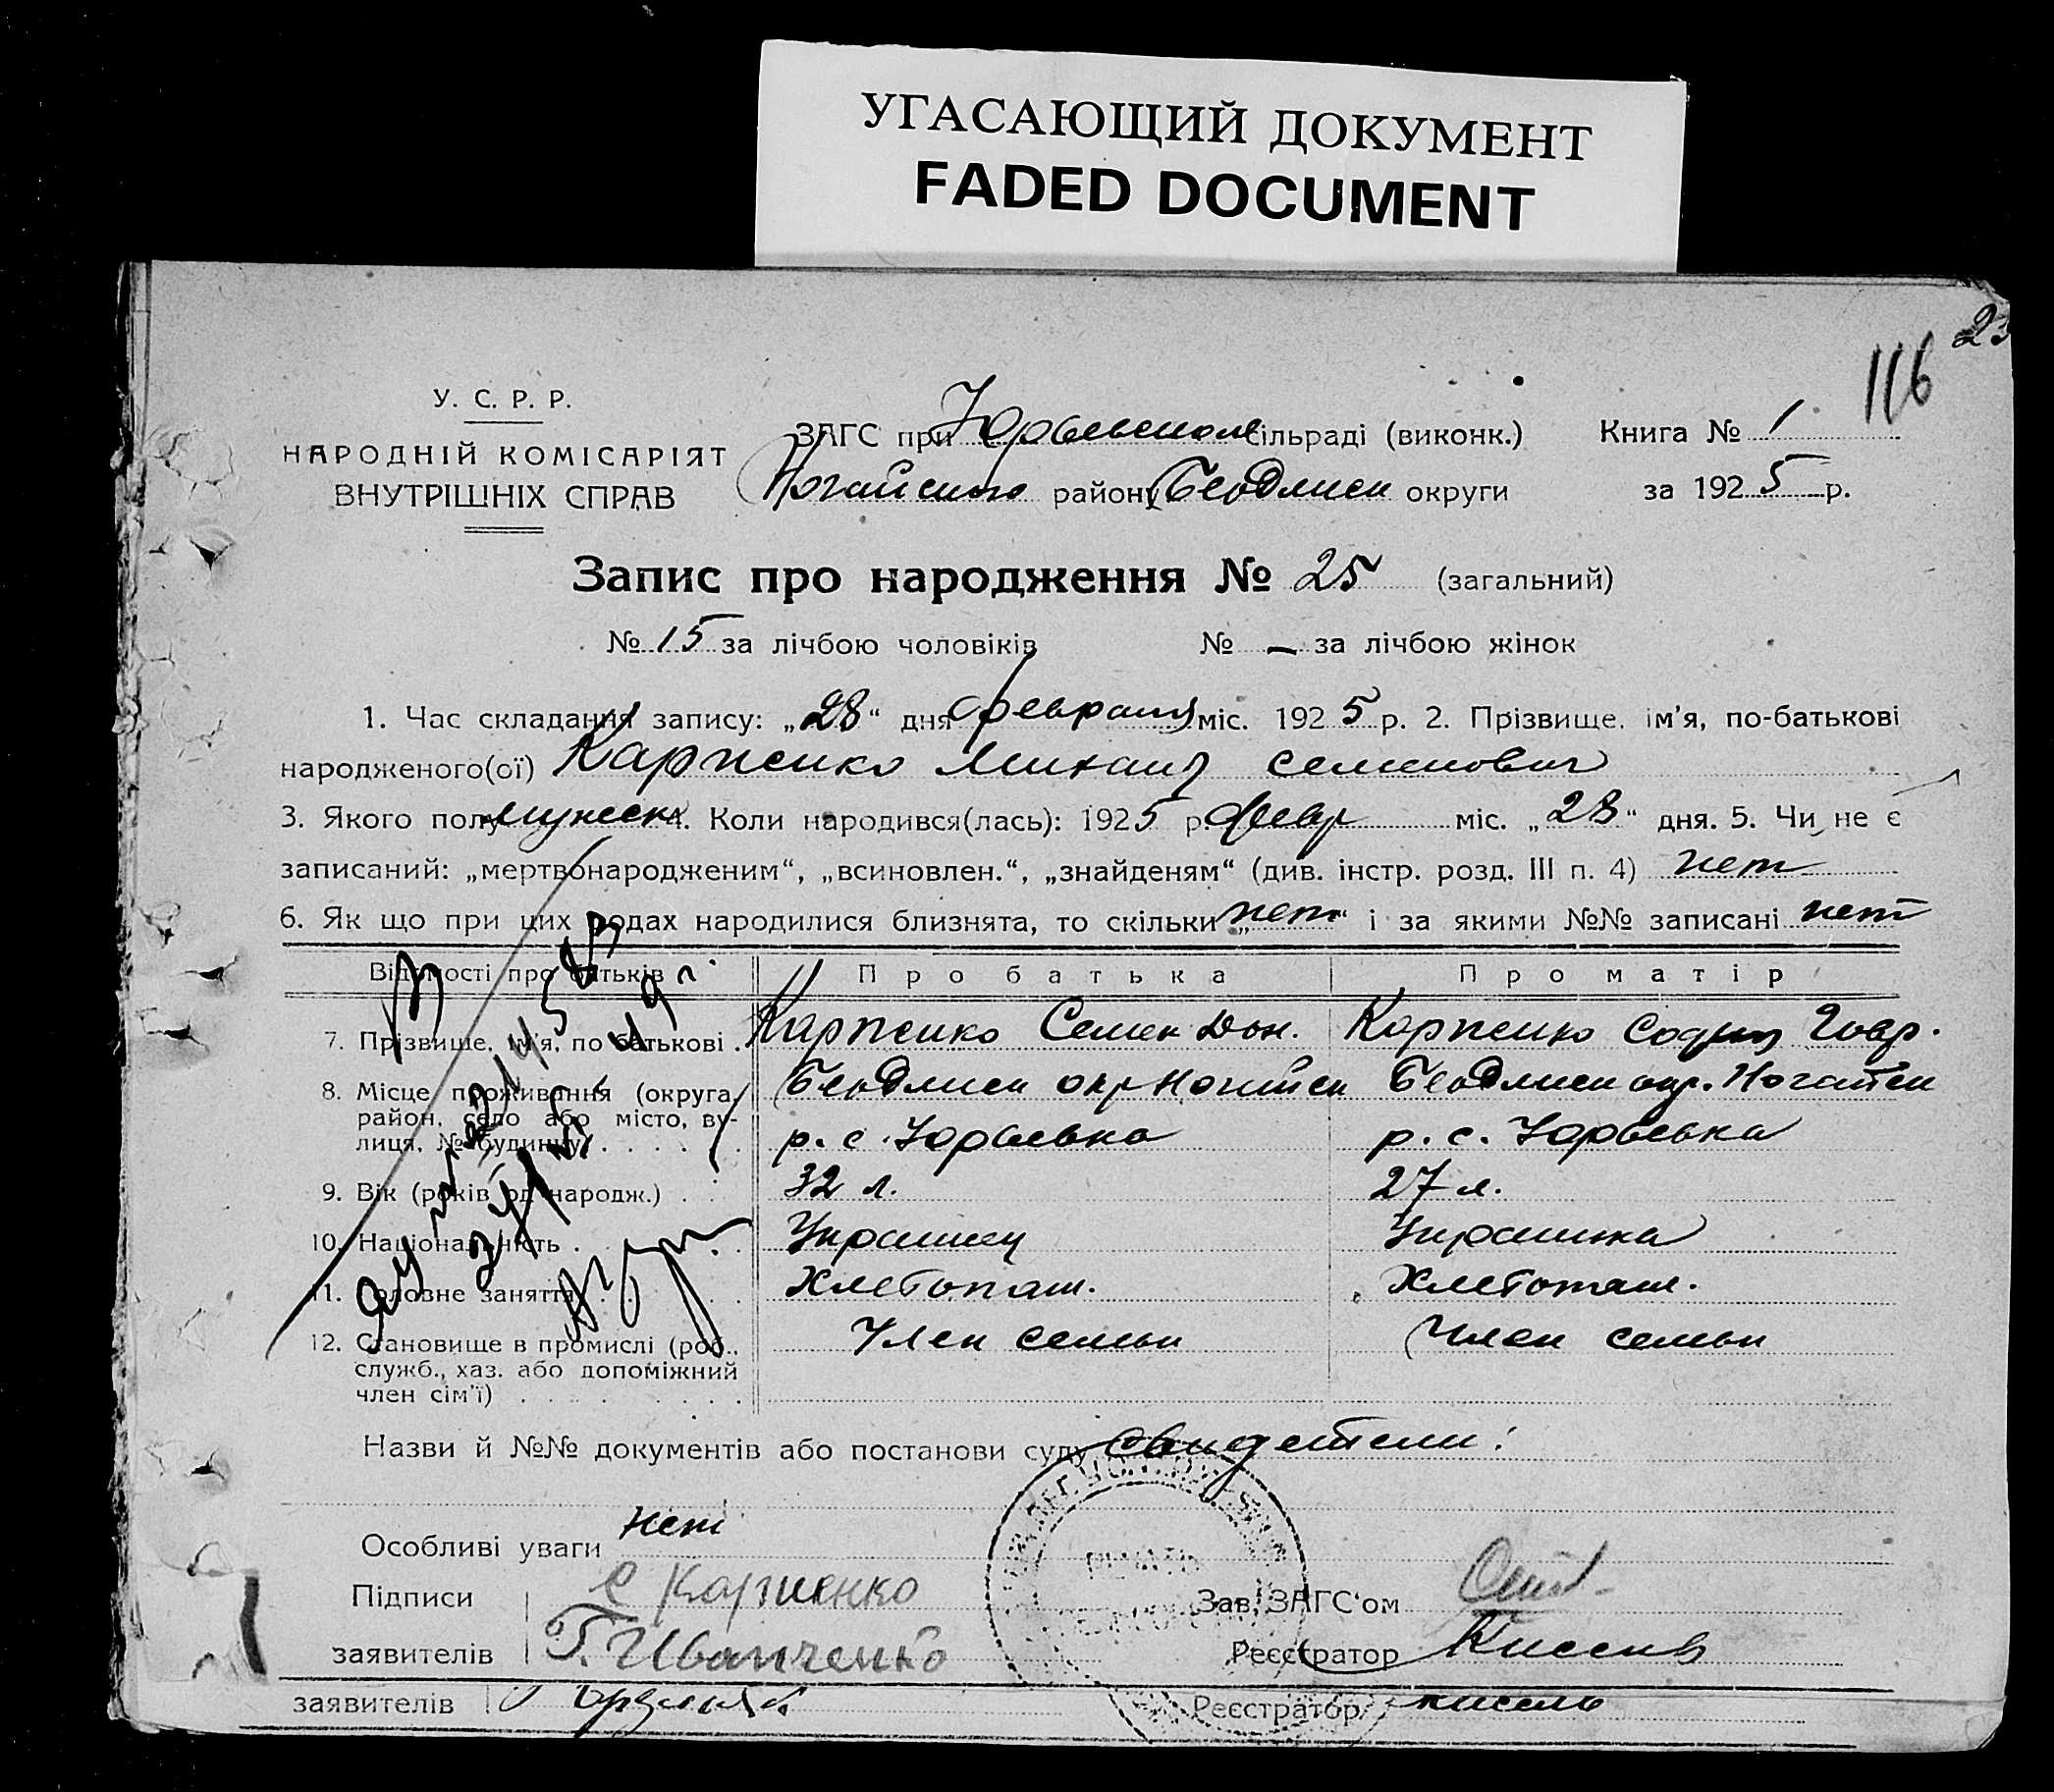 УГАСАЮЩИЙ ДОКУМЕНТ
FADED DOCUMENT
116
У. С. Р. Р.
НАРОДНІЙ КОМІСАРІЯТ
ВНУТРІШНІХ СПРАВ
ЗАГС при Юрьевском сільраді (виконк.)
Ногайского району Бердянск округи
Книга № 1
за 1925 р.
Запис про народження № 25 (загальний)
№ 15 за лічбою чоловіків № — за лічбою жінок
1. Час складання запису: „28“ дня февраля міс. 1925 р. 2. Прізвище, ім’я, по-батькові
народженого(ої) Карпенко Михаил Семенович
3. Якого полу мужеск 4. Коли народився(лась): 1925 р. февр міс. „28“ дня. 5. Чи не є
записаний: „мертвонародженим“, „всиновлен.“, „знайденям“ (див. інстр. розд. III п. 4) нет
6. Як що при цих родах народилися близнята, то скільки „нет“ і за якими №№ записані нет
Відомості про батьків Про батька Про матір
7. Прізвище, ім’я, по батькові . Карпенко Семен Карпенко Гавр.
8. Місце проживання (округа, Бердянск окр Ногайск Бердянск окр. Ногайск
район, село або місто, ву- р. с. Юрьевка р. с. Юрьевка
лиця, № будинку)
9. Вік (років од народж.) 32 л. 27 л.
10. Національність Украинец Украинка
11. Головне заняття Хлебопаш. Хлебопаш.
12. Становище в промислі (роб., Член семьи Член семьи
служб., хаз. або допоміжний
член сім’ї)
Назви й №№ документів або постанови суду Свидетели:
Особливі уваги нет
Підписи С Карпенко Зав. ЗАГС‘ом
заявителів Г. Иванченко Реєстратор
заявителів Реєстратор Кисель